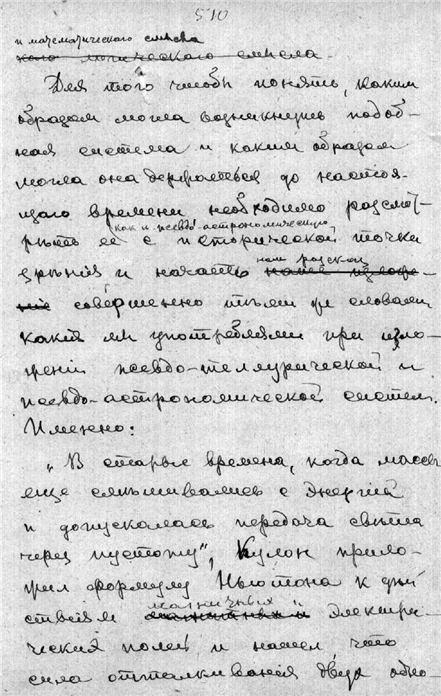 510
и математического смысла
кого логического смысла.
Для того чтобы понять, каким
образом могла возникнуть подоб-
ная система и каким образом
могла она держаться до настоя-
щаго времени необходимо разсмот-
как и псевдо-астрономическую
рѣть ее с исторической точки
наш разсказ
зрѣнія и начать
совершенно тѣми же словами
какія мы употребляли при изло-
женіи псевдо-теллурической и
псевдо-астрономической систем.
Именно:
„В старые времена, когда массы
еще смѣшивались с энергіей
и допускалась передача свѣта
через пустоту", Кулон прило-
жил формулу Ньютона к дѣй
магничных и
ствіям электри-
ческих полей и нашел, что
сила отталкиванія двух одно-